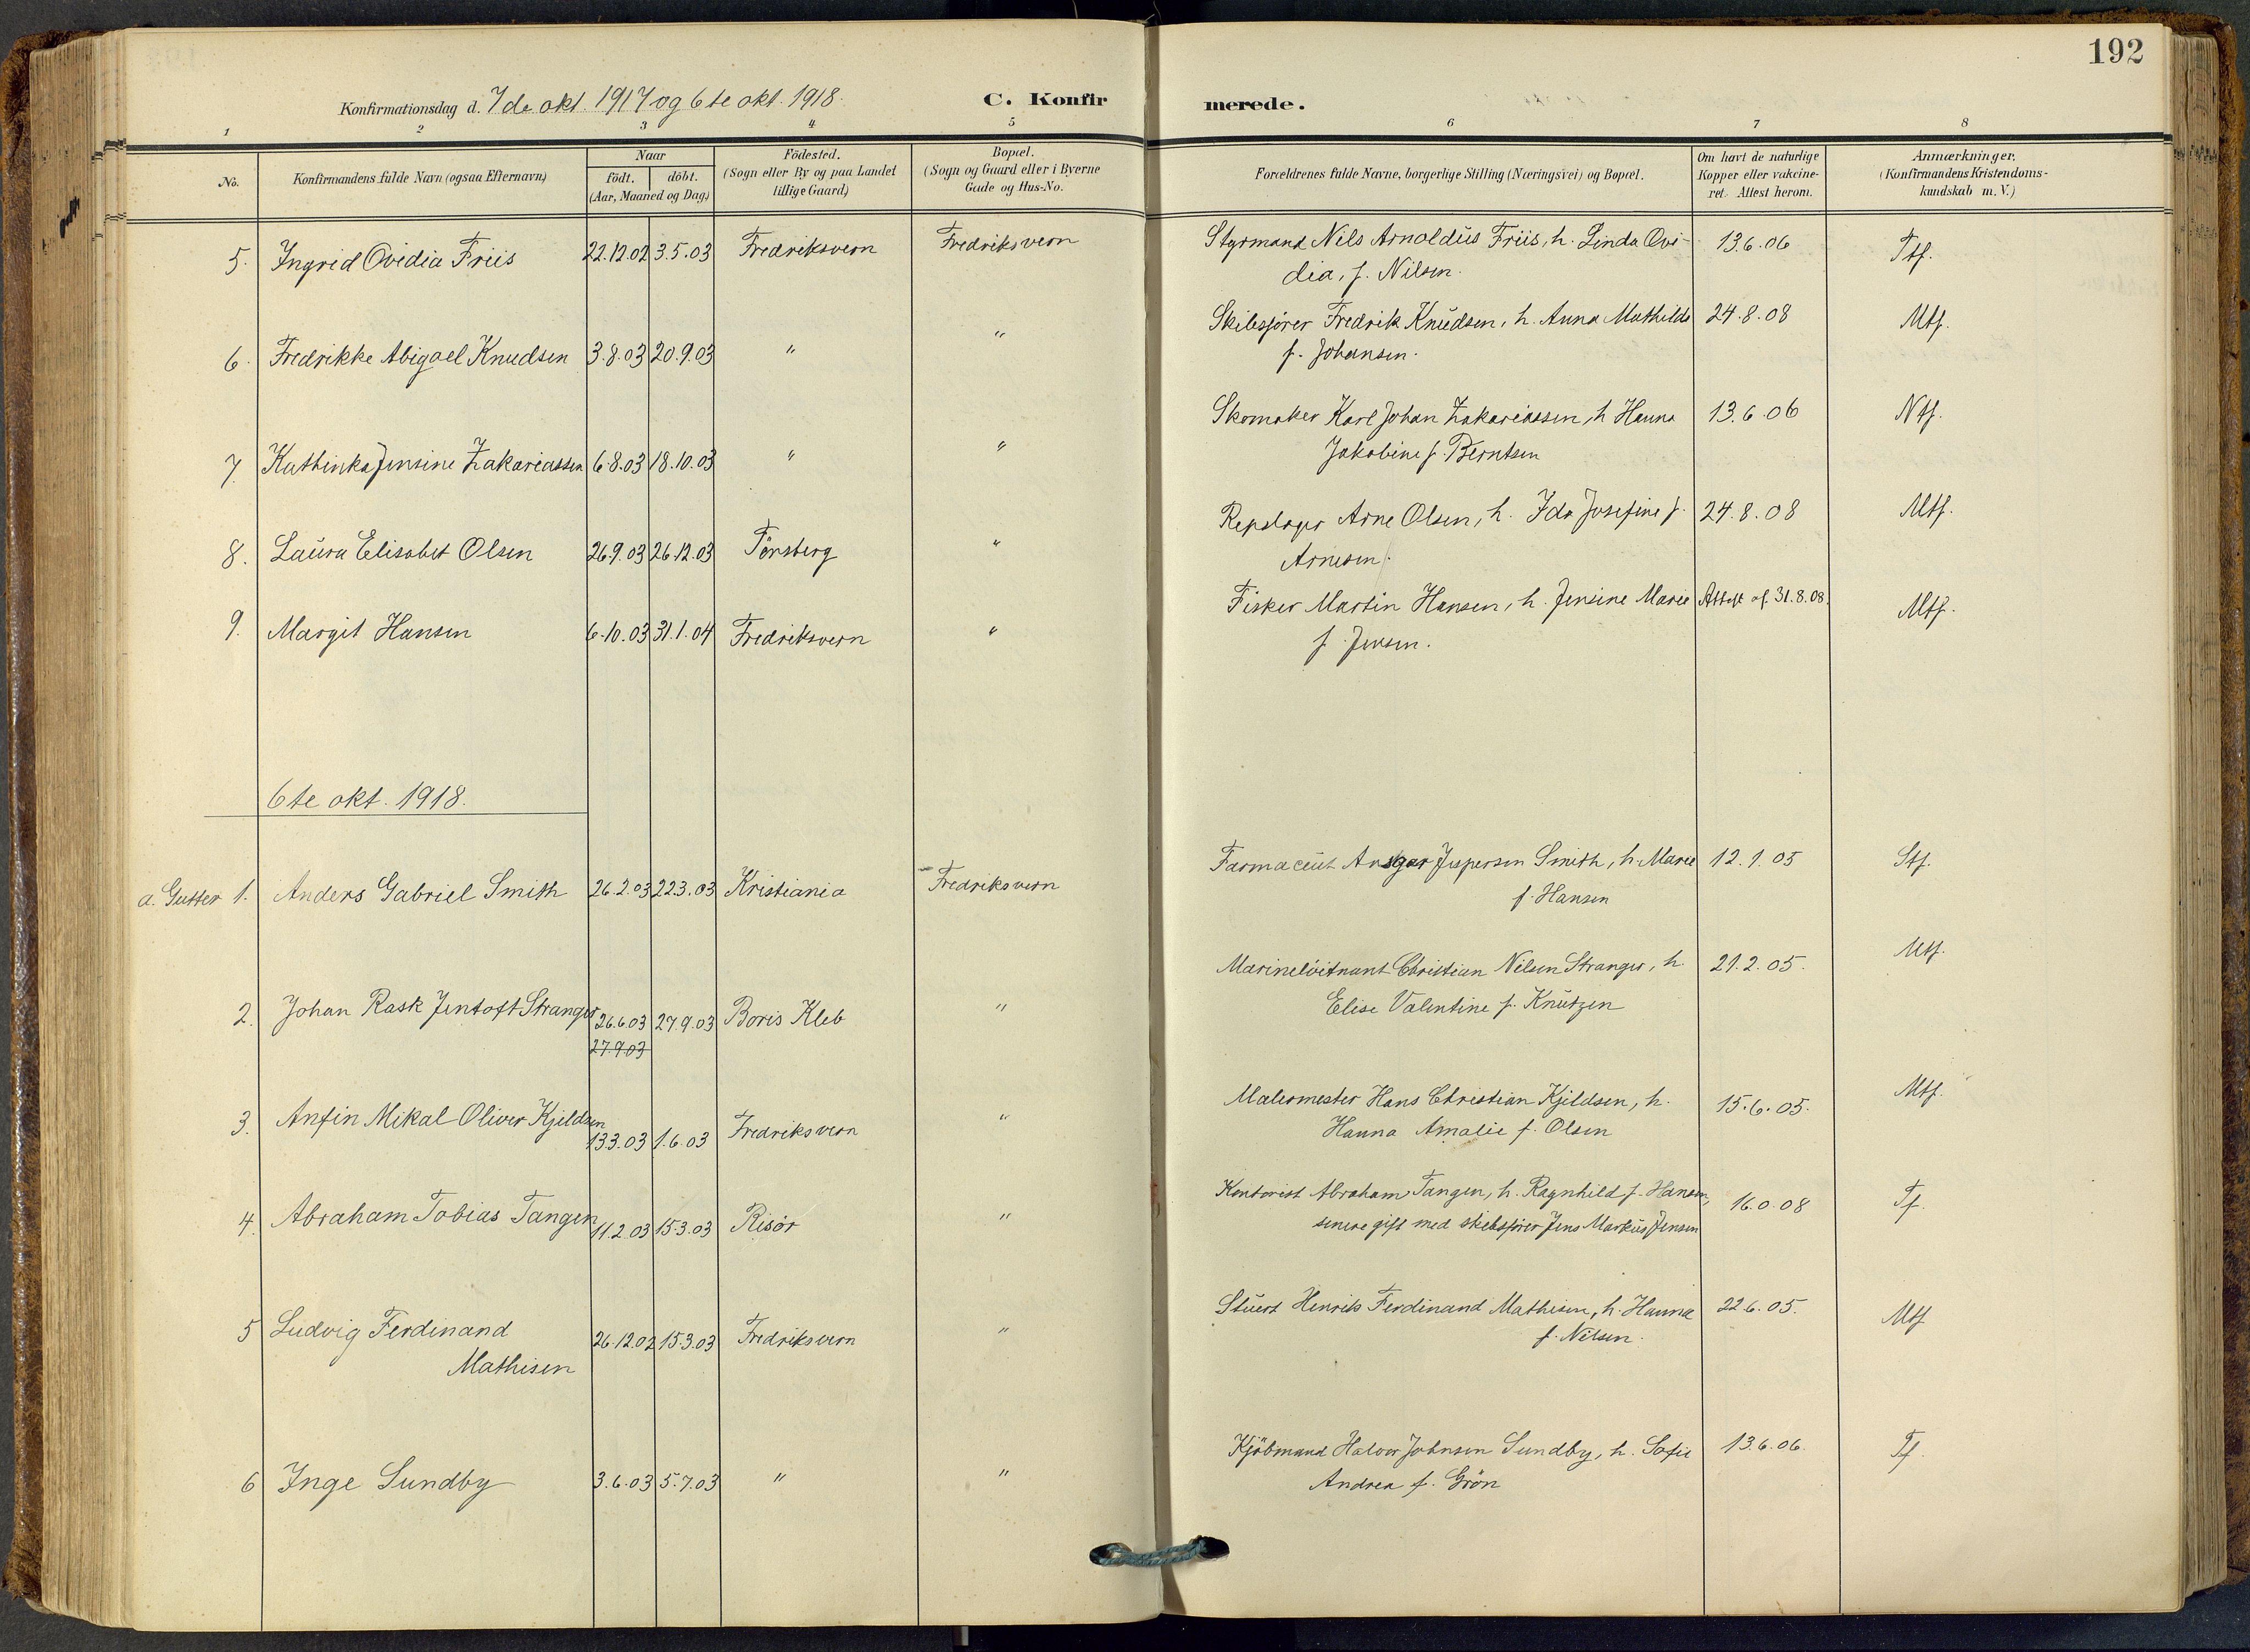 192
Konfirmationsdag d. 7de okt. 1917 og 6te okt. 1918. C. Konfirmerede.
1 2 3 4 5 6 7 8
No.
Konfirmandens fulde Navn (ogsaa Efternavn)
Naar
födt. döbt.
(Aar, Maaned og Dag)
Födested.
(Sogn eller By og paa Landet
tillige Gaard)
Bopæl.
(Sogn og Gaard eller i Byerne
Gade og Hus-No.
Forældrenes fulde Navne, borgerlige Stilling (Næringsvei) og Bopæl.
Om havt de naturlige
Kopper eller vakcine-
ret. Attest herom.
Anmærkninger.
(Konfirmandens Kristendoms-
kundskab m. V.)
5. Ingrid Ovidia Friis 22.12.02 3.5.03 Fredriksvern Fredriksvern Styrmand Nils Arnoldus Friis, h. Linda Ovi- 13.6.06 Ttf.
dia, f. Nilsen.
6. Fredrikke Abigael Knudsen 3.8.03 20.9.03 " " Skibsfører Fredrik Knudsen, h. Anna Mathilde 24.8.08 Mtf.
f. Johansen.
7. Kathinka Jensine Zakariassen 6.8.03 18.10.03 " " Skomaker Karl Johan Zakariassen, h Hanna 13.6.06 Ntf.
Jakobine f. Berntsen
8. Laura Elisabet Olsen 26.9.03 26.12.03 Tönsberg " Repslager Arne Olsen, h. Ida Josefine f. 24.8.08 Mtf.
Arnesen.
9. Margit Hansen 6.10.03 31.1.04 Fredriksvern " Fisker Martin Hansen, h. Jensine Marie Attest af 31.8.08. Mtf.
f. Jensen.
6te okt. 1918.
a. Gutter 1. Anders Gabriel Smith 26.2.03 22.3.03 Kristiania Fredriksvern Farmaceut Ansgar Jespersen Smith, h. Marie 12.1.05 Stf.
f. Hansen
2. Johan Rask Jentoft Stranger 26.6.03 27.9.03 Boris Kleb " Marinelöitnant Christian Nilsen Stranger, h 21.2.05. Mtf.
27.9.03 Elise Valentine f. Knutzen
3. Anfin Mikal Oliver Kjeldsen 13.3.03 1.6.03 Fredriksvern " Malermester Hans Christian Kjeldsen, h. 15.6.05. Mtf.
Hanna Amalie f. Olsen
4. Abraham Tobias Tangen 11.2.03 15.3.03 Risör " Kontorist Abraham Tangen, h. Ragnhild f. Hansen, 16.0.08 Tf.
senere gift med skibsfører Jens Markus Jensen
5 Ludvig Ferdinand 26.12.02 15.3.03 Fredriksvern " Stuert Henrik Ferdinand Mathisen, h. Hanna 22.6.05. Mtf
Mathisen f. Nilsen.
6 Inge Sundby 3.6.03 5.7.03 " " Kjöbmand Halvor Johnsen Sundby, h. Sofie 13.6.06. Tf.
Andrea f. Grön